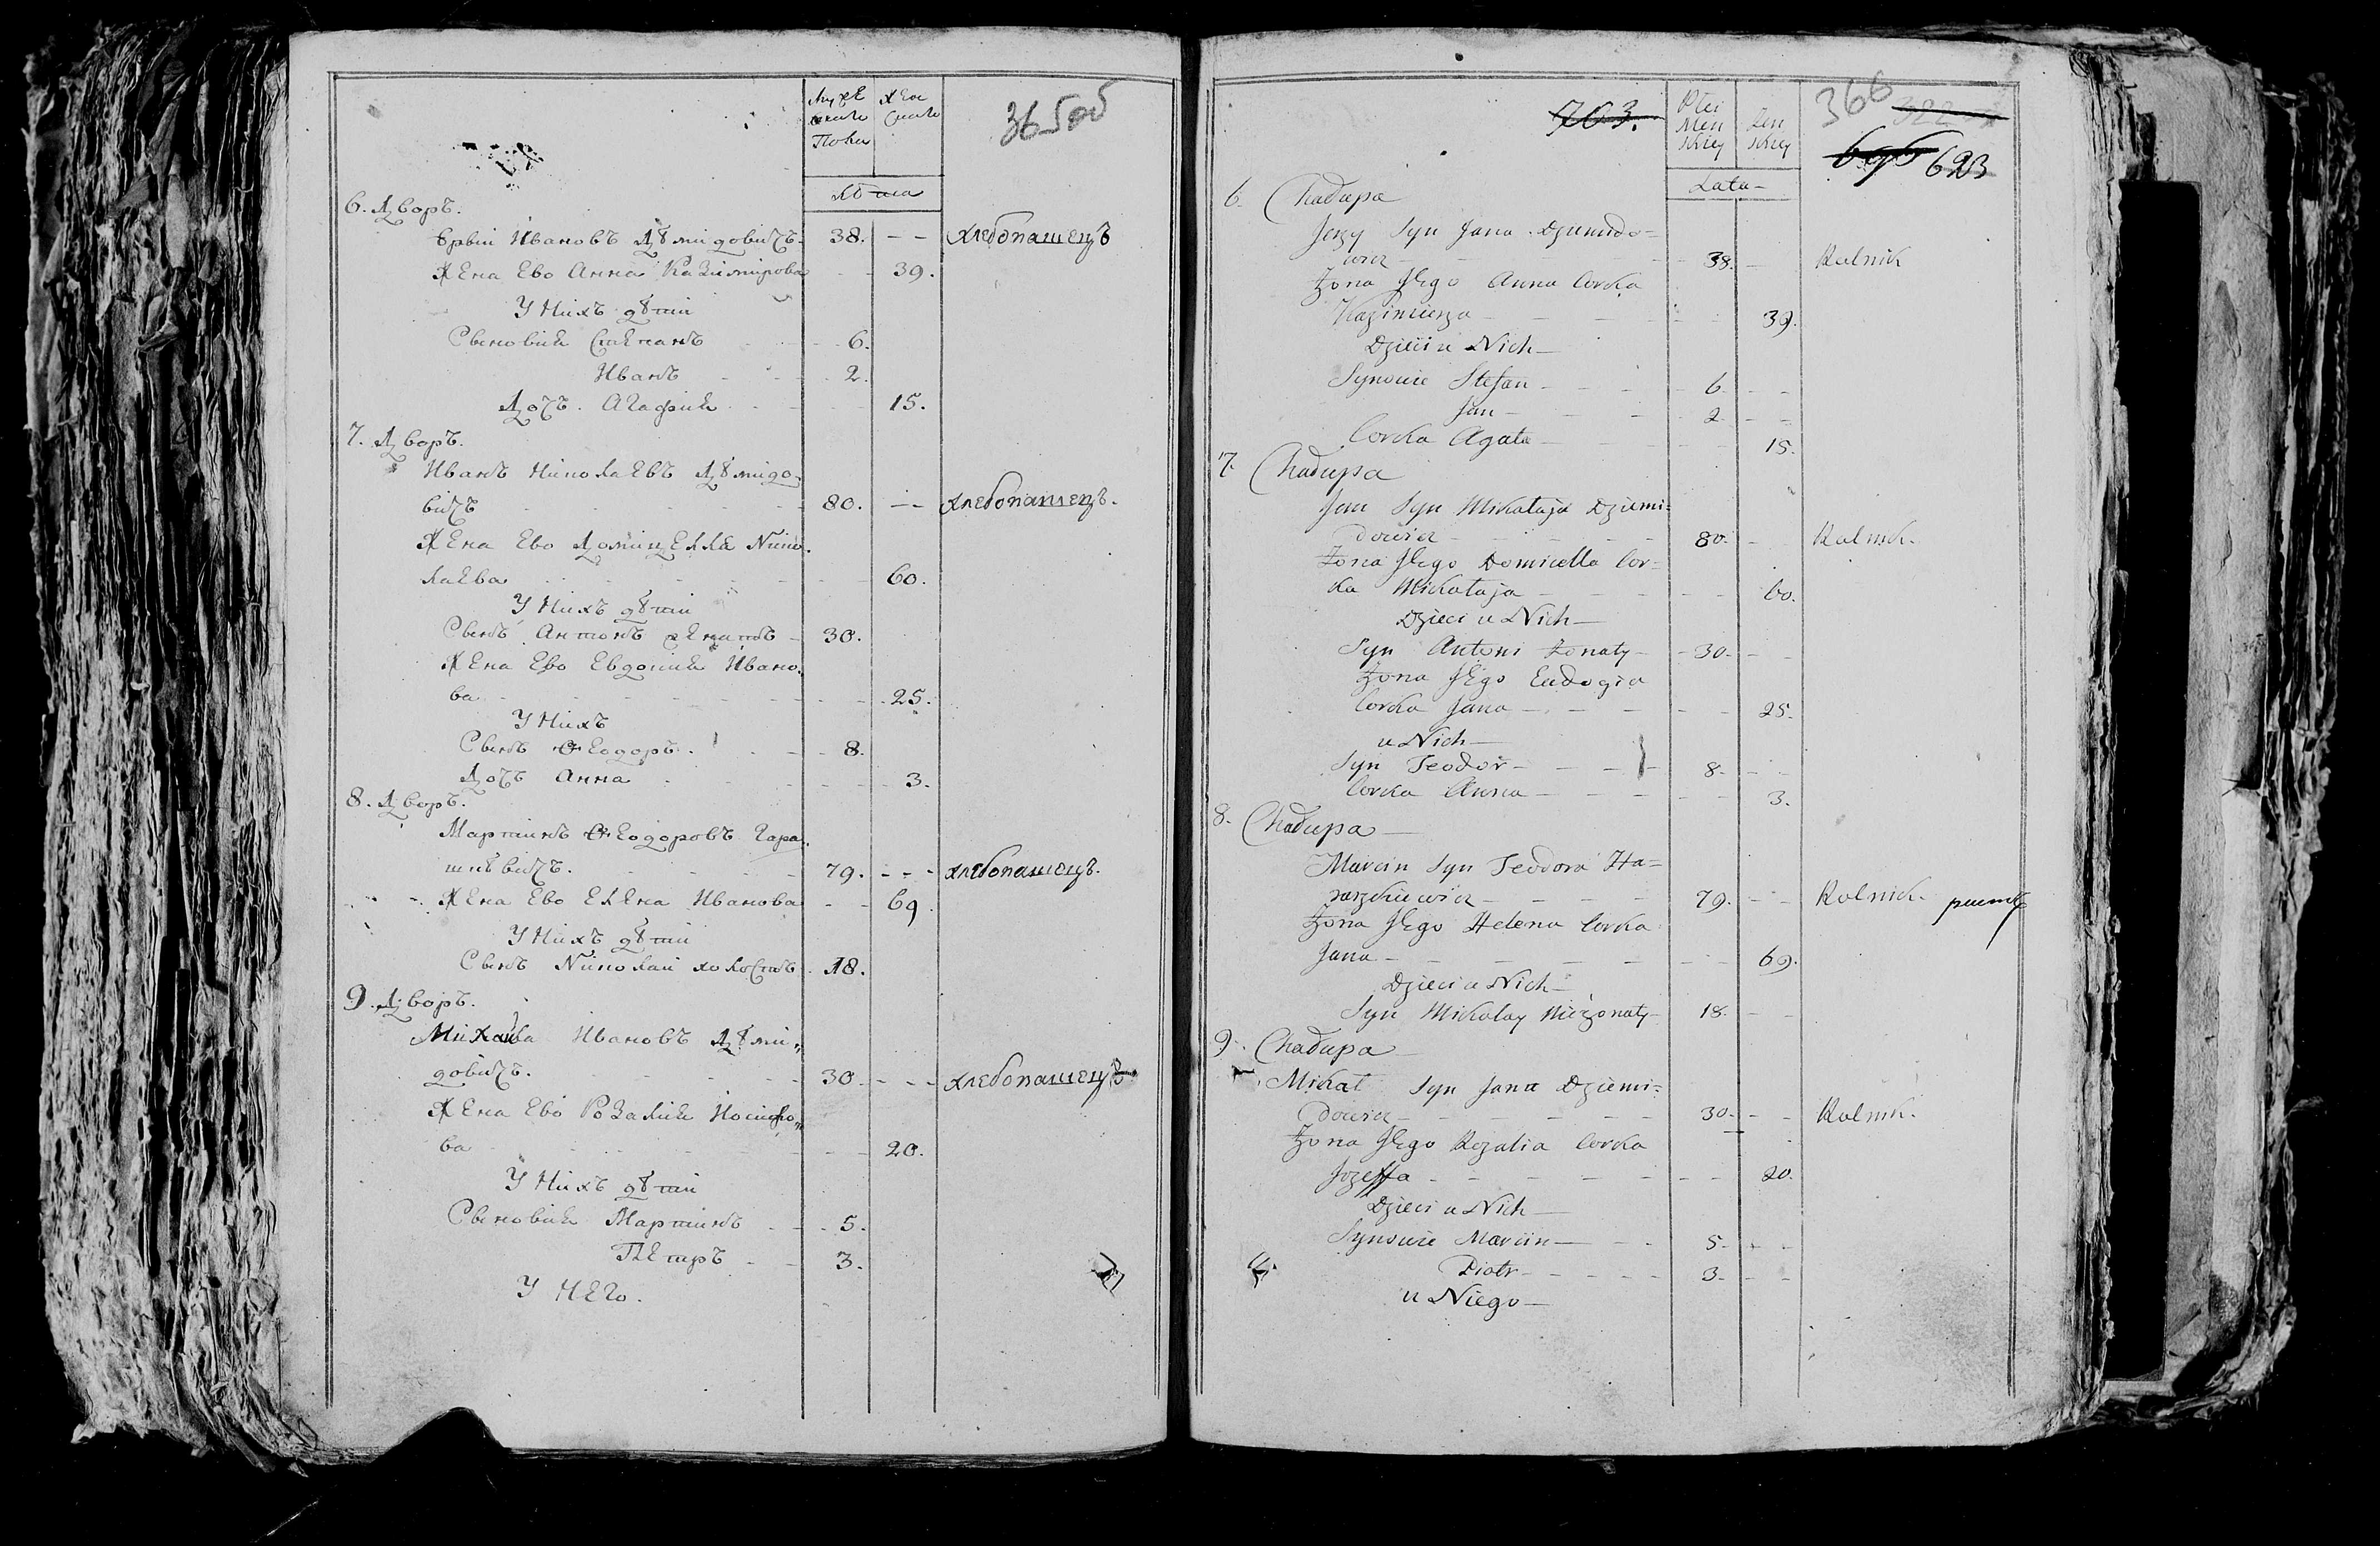 Муже
ска
Полу
Жен
ска
365об
лѣта
6. Дворъ.
Юрьи Ивановъ Дѣмидовичъ 38. - - хлебопашецъ
Жена Ево Анна Казимирова - - 39.
У Нихъ дѣти
Сыновья Степанъ - - 6.
Иванъ - - 2.
Дочь Агафия - - 15.
7. Дворъ.
Иванъ Николаевъ Дѣмидо-
вичъ - - 80. - - хлебопашецъ.
Жена Ево Домицелла Нико-
лаева - - 60.
У Нихъ дѣти
Сынъ Антонъ женатъ - 30.
Жена Ево Евдокия Ивано-
ва - - 25.
У Нихъ
Сынъ Ѳеодоръ. - - 8.
Дочь Анна - - 3.
8. Дворъ.
Мартинъ Ѳеодоровъ Гара-
шкевичъ. - 79. - - - хлебопашецъ.
Жена Ево Елена Иванова - - 69
У Нихъ дѣти
Сынъ Николай холостъ 18.
9. Дворъ.
Михаила Ивановъ Дѣми-
довичъ. - - 30. - - - хлебопашецъ
Жена Ево Розалия Иосифо-
ва - - 20.
У Нихъ дѣти
Сыновья Мартинъ - - 5.
Петръ - - 3.
У Него.
703.
Płci
Męs
kiey
Żen
skiey
366
322
696 693
Lata -
6. Chałupa
Jerzy Syn Jana Dziemido=
wicz - - 38. - Rolnik
Żona Jego Anna Corka
Kazimierza - - 39.
Dzieci u Nich -
Synowie Stefan - - 6. - -
Jan - - 2. - -
Corka Agata - - 15.
7. Chałupa
Jan Syn Mikołaja Dziemi=
dowicz - - 80. - Rolnik.
Żona Jego Domicella Cor=
ka Mikołaja - - 60.
Dzieci u Nich -
Syn Antoni Żonaty - 30. - -
Żona Jego Eudogia
Corka Jana - - 25.
u Nich -
Syn Teodor - - 8. - -
Corka Anna - - 3.
8. Chałupa -
Marcin Syn Teodora Ha=
raszkiewicz - - 79. - - Rolnik.
Żona Jego Helena Corka
Jana - - 69.
Dzieci u Nich -
Syn Mikołay Nieżonaty - 18. - -
9. Chałupa -
Michał Syn Jana Dziemi=
dowicz - - 30. - - Rolnik.
Żona Jego Rozalia Corka
Jozeffa - - 20.
Dzieci u Nich -
Synowie Marcin - - 5. - -
Piotr - - 3. - -
u Niego -